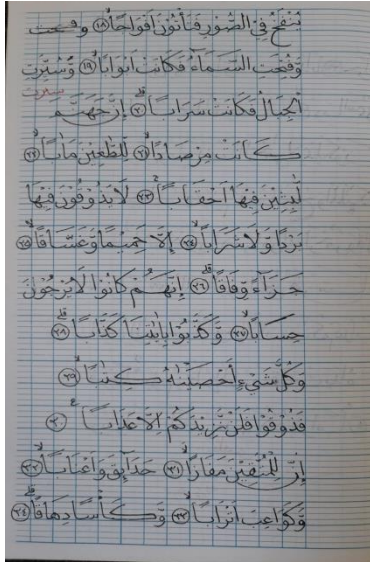 يُنْفَخُ فِي الصُّوْرِ فَتَأْتُوْنَ اَفْوَاجًا ۝١٨ وفتحت
وَّفُتِحَتِ السَّمَآءُ فَكَانَتْ اَبْوَابًا ۝١٩ وَّسُيِّرَتِ
سيرت
الْجِبَالُ فَكَانَتْ سَرَابًا ۝٢٠ اِنَّ جَهَنَّمَ
كَانَتْ مِرْصَادًا ۝٢١ لِّلطّٰغِيْنَ مَاٰبًا ۝٢٢
لّٰبِثِيْنَ فِيْهَآ اَحْقَابًا ۝٢٣ لَا يَذُوْقُوْنَ فِيْهَا
بَرْدًا وَّلَا شَرَابًا ۝٢٤ اِلَّا حَمِيْمًا وَّغَسَّاقًا ۝٢٥
جَزَآءً وِّفَاقًا ۝٢٦ اِنَّهُمْ كَانُوْا لَا يَرْجُوْنَ
حِسَابًا ۝٢٧ وَّكَذَّبُوْا بِاٰيٰتِنَا كِذَّابًا ۝٢٨
وَكُلَّ شَيْءٍ اَحْصَيْنٰهُ كِتٰبًا ۝٢٩
فَذُوْقُوْا فَلَنْ نَّزِيْدَكُمْ اِلَّا عَذَابًا ۝٣٠
اِنَّ لِلْمُتَّقِيْنَ مَفَازًا ۝٣١ حَدَآئِقَ وَاَعْنَابًا ۝٣٢
وَّكَوَاعِبَ اَتْرَابًا ۝٣٣ وَّكَاْسًا دِهَاقًا ۝٣٤